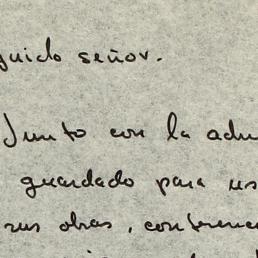 guido señor.
Junto con la adm
guardado para us
sus obras, conferenc